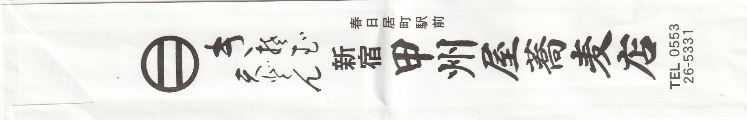 春日居町駅前
新宿
甲州屋蕎麦店
TEL 0553
26-5331